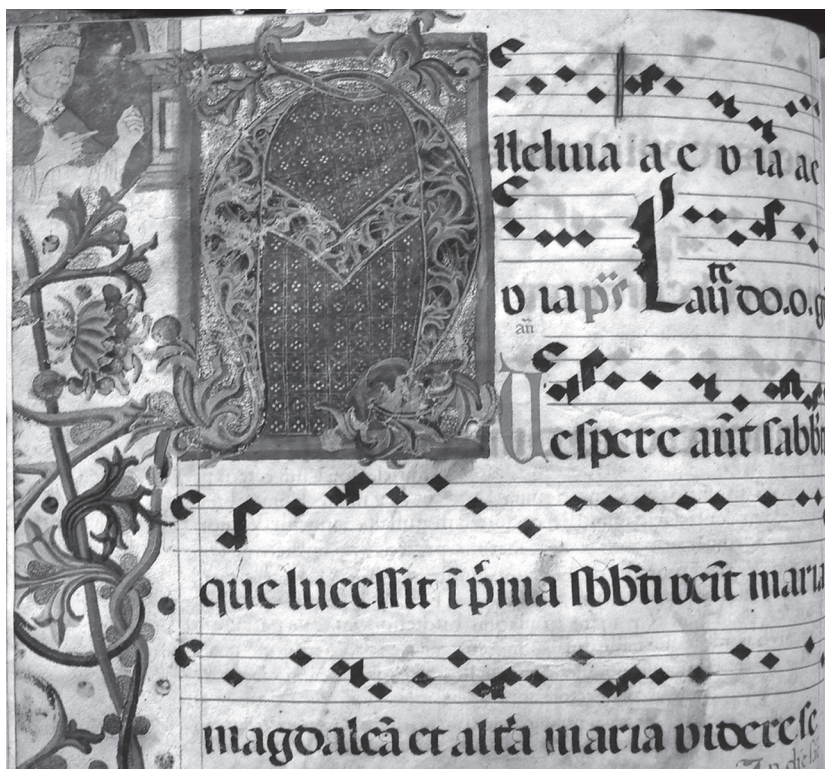 Alleluia a e v ia ae
v ia ps̄ Lau͞do.o.
te
an̄
Vespere aūt sabb
que lucessit ī p̄ma sbb̄ti veīt maria
magdaleā et alt̄a maria videre se
In die